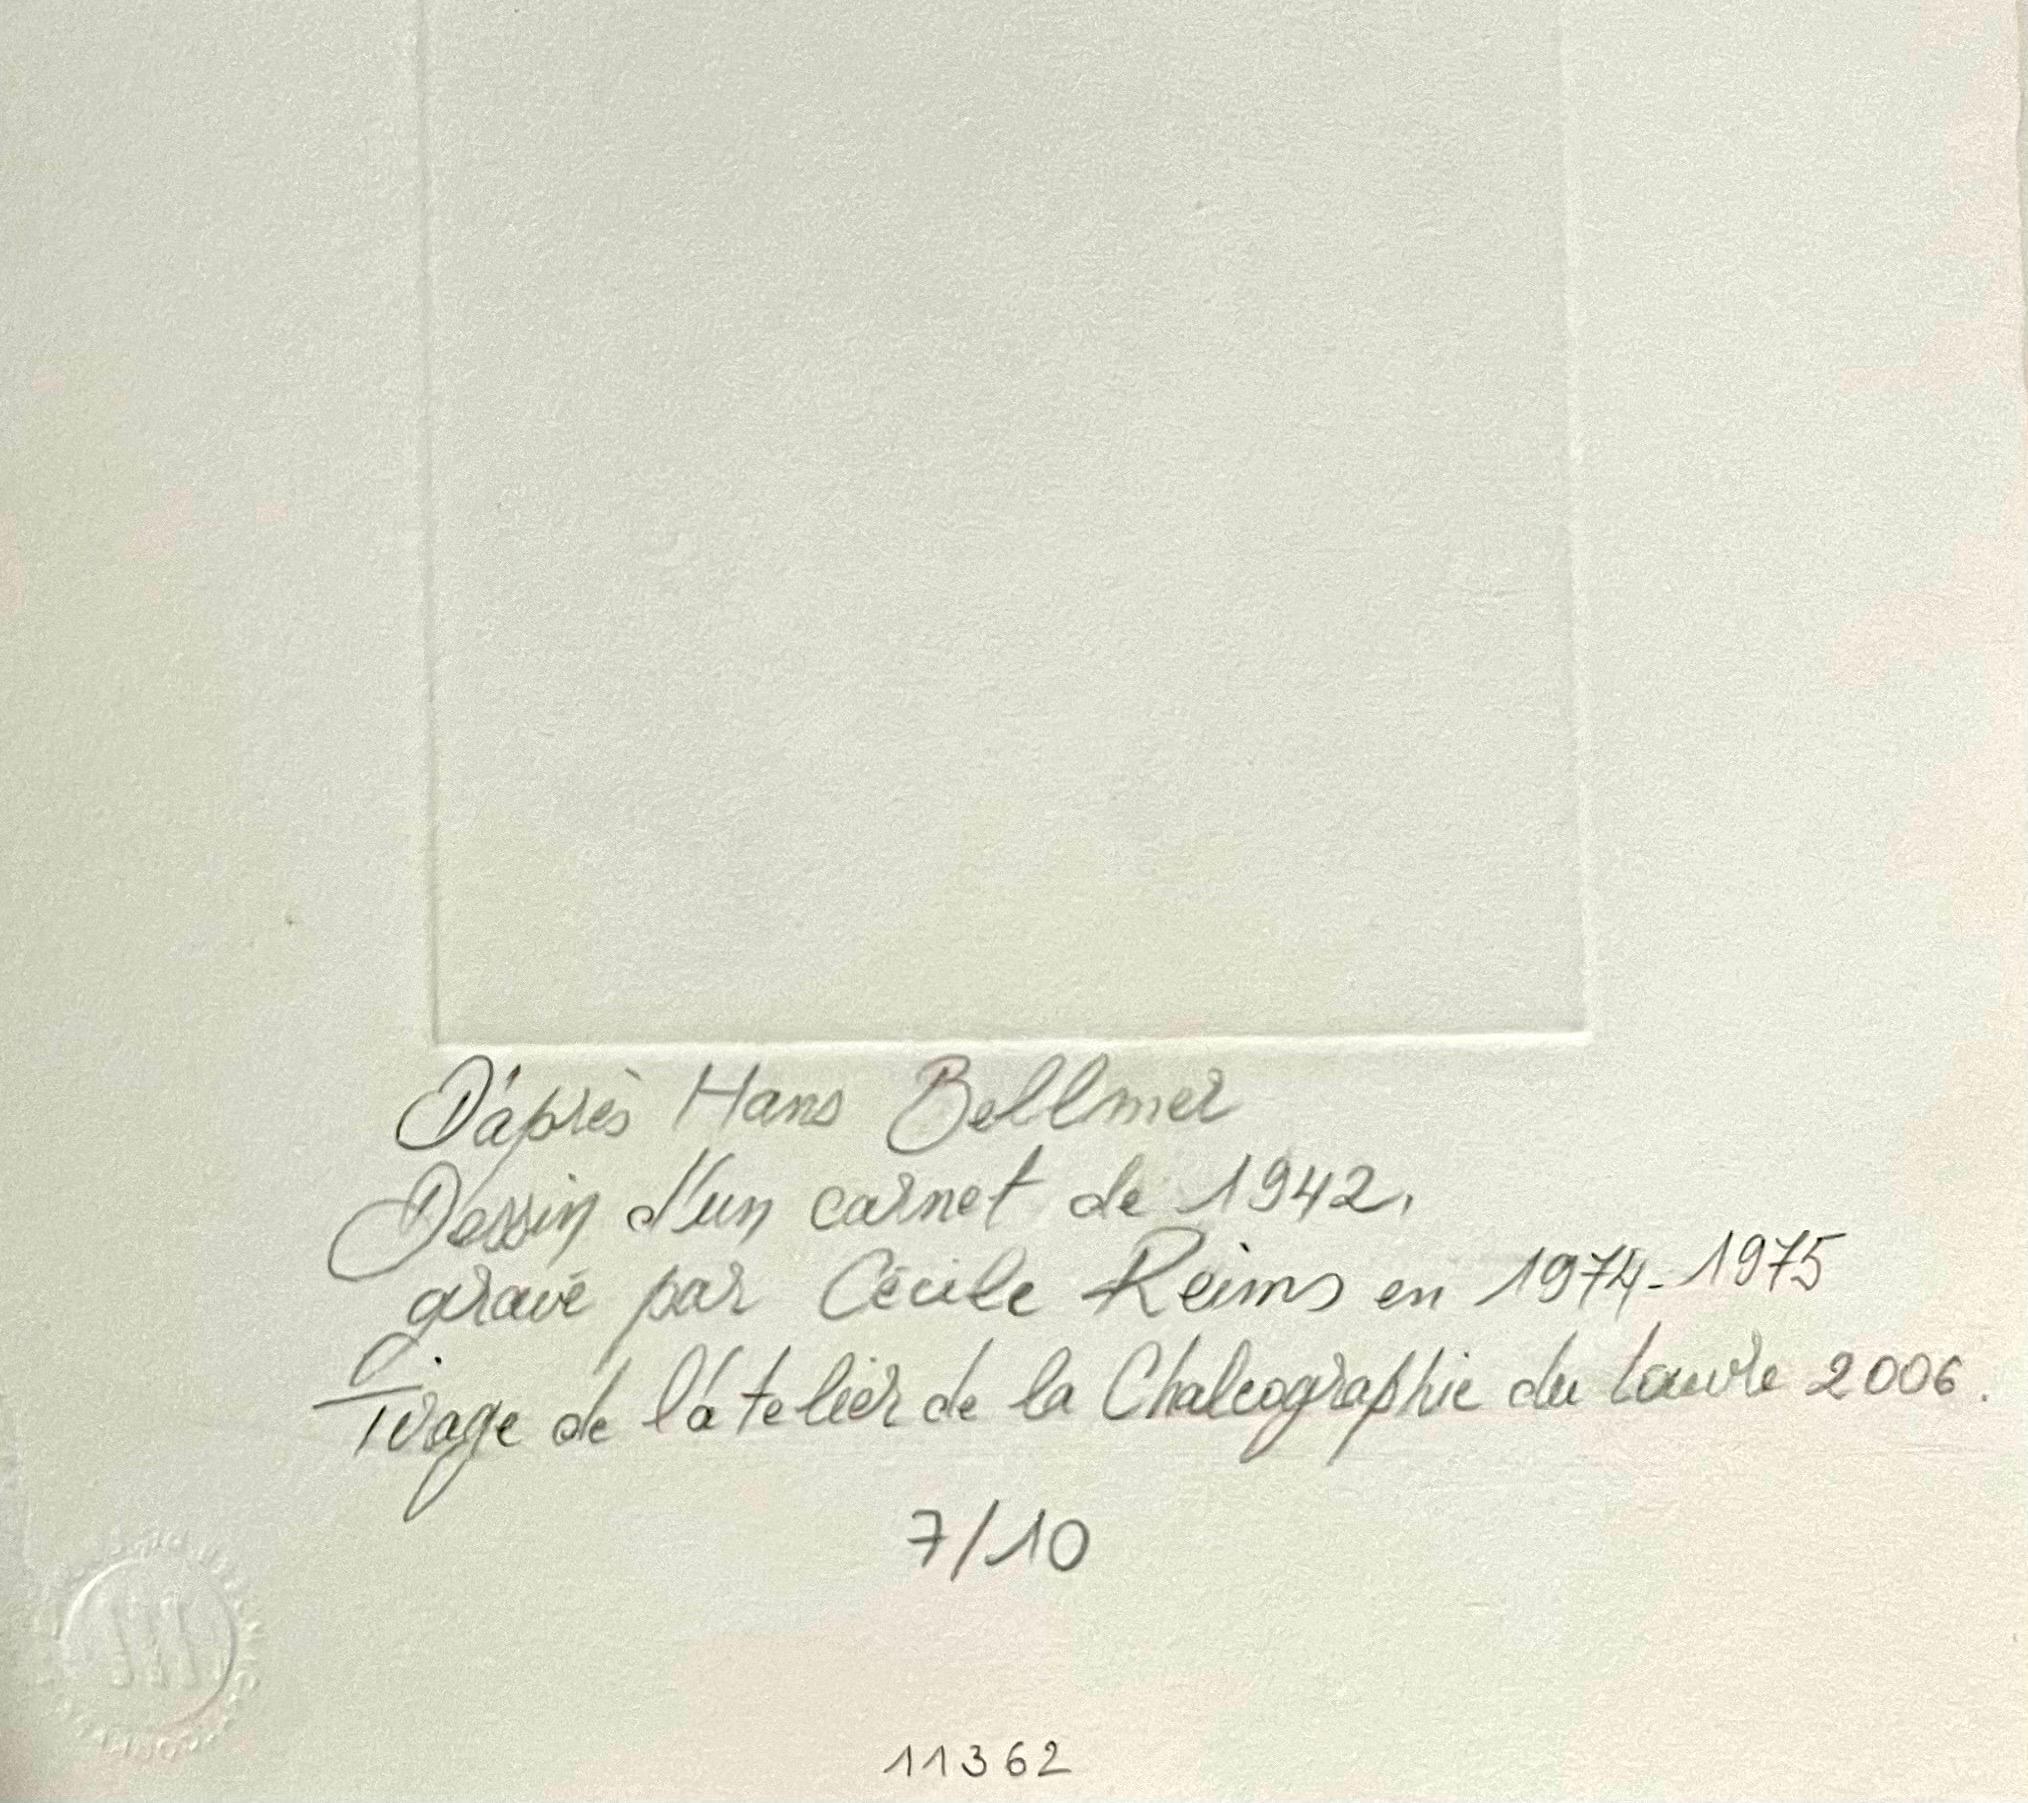 D'après Hans Bellmer
Dessin d'un carnet de 1942.
gravé par Cécile Reims en 1974-1975
Tirage de l'atelier de la Chalcographie du Louvre 2006.
7/10
11362